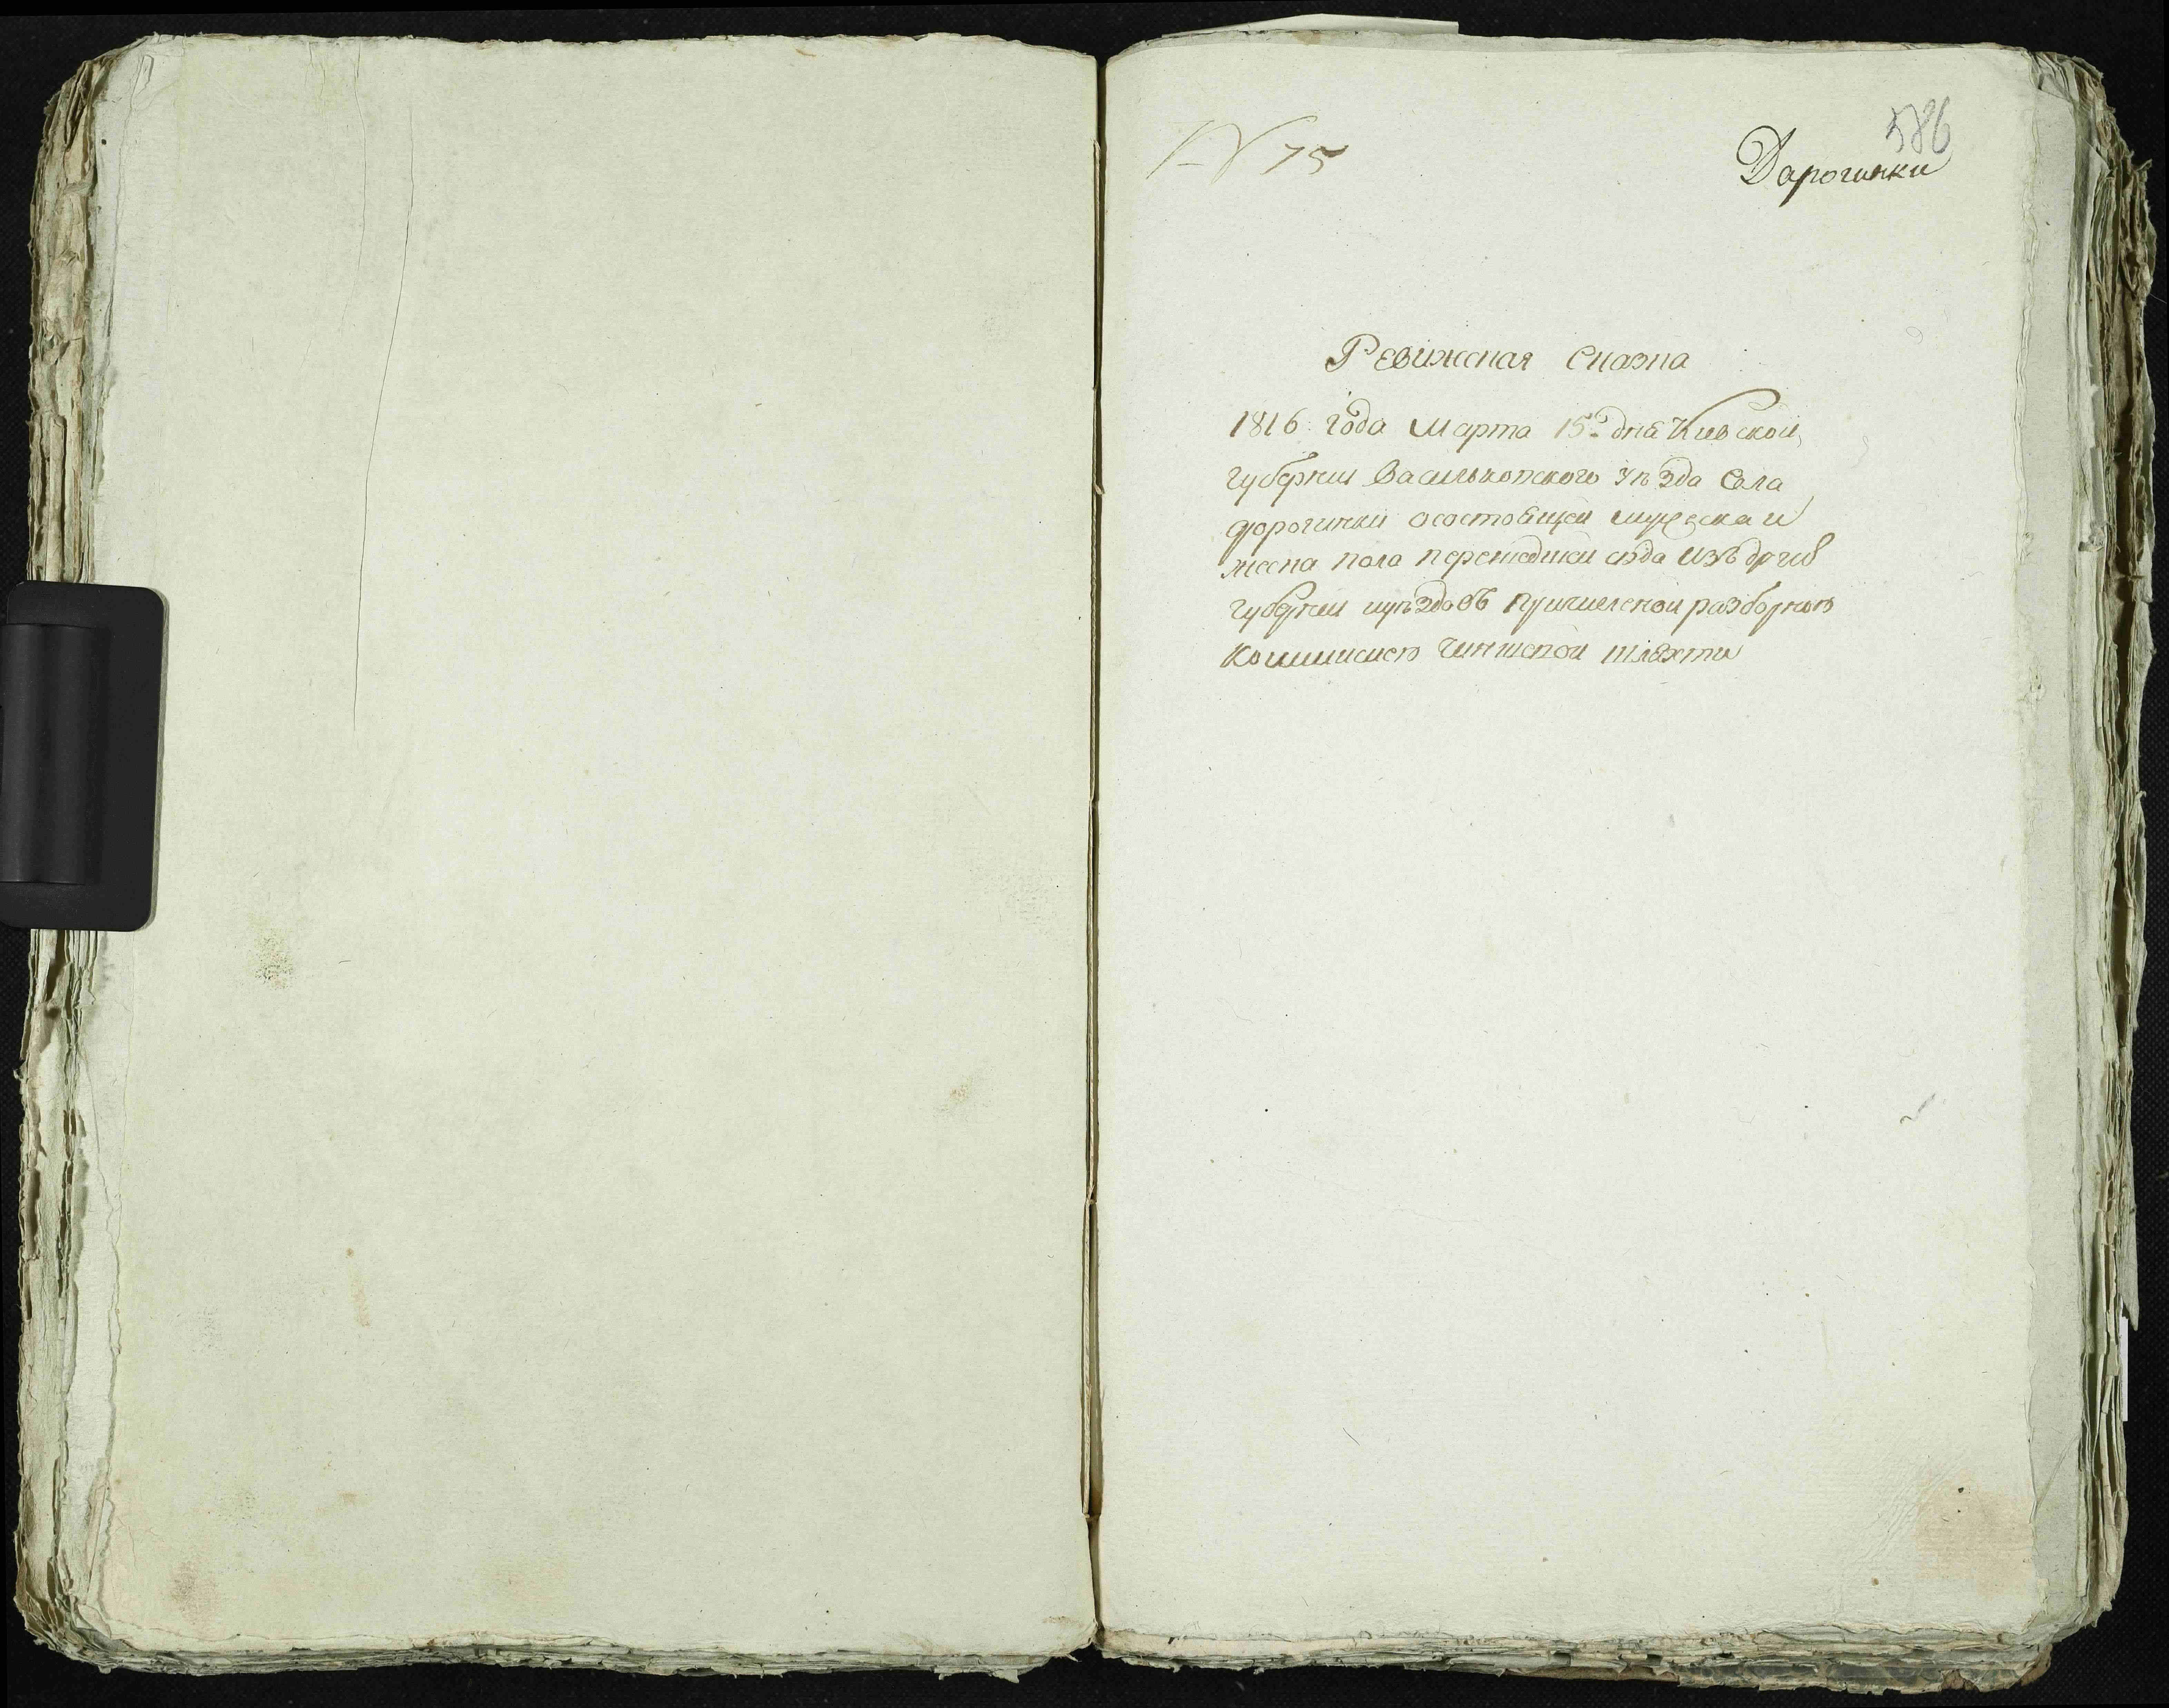 586
N 75
Дарогинки
Ревижская Сказка
1816 года марта 15го дня Киевской
губернии Васильковского уезда Села
дорогинки осостоящей мужеска и
женска пола перешедшей сюда изъ других
губернии иуездовъ причисленой разборною
коммисиею чиншевой шляхти